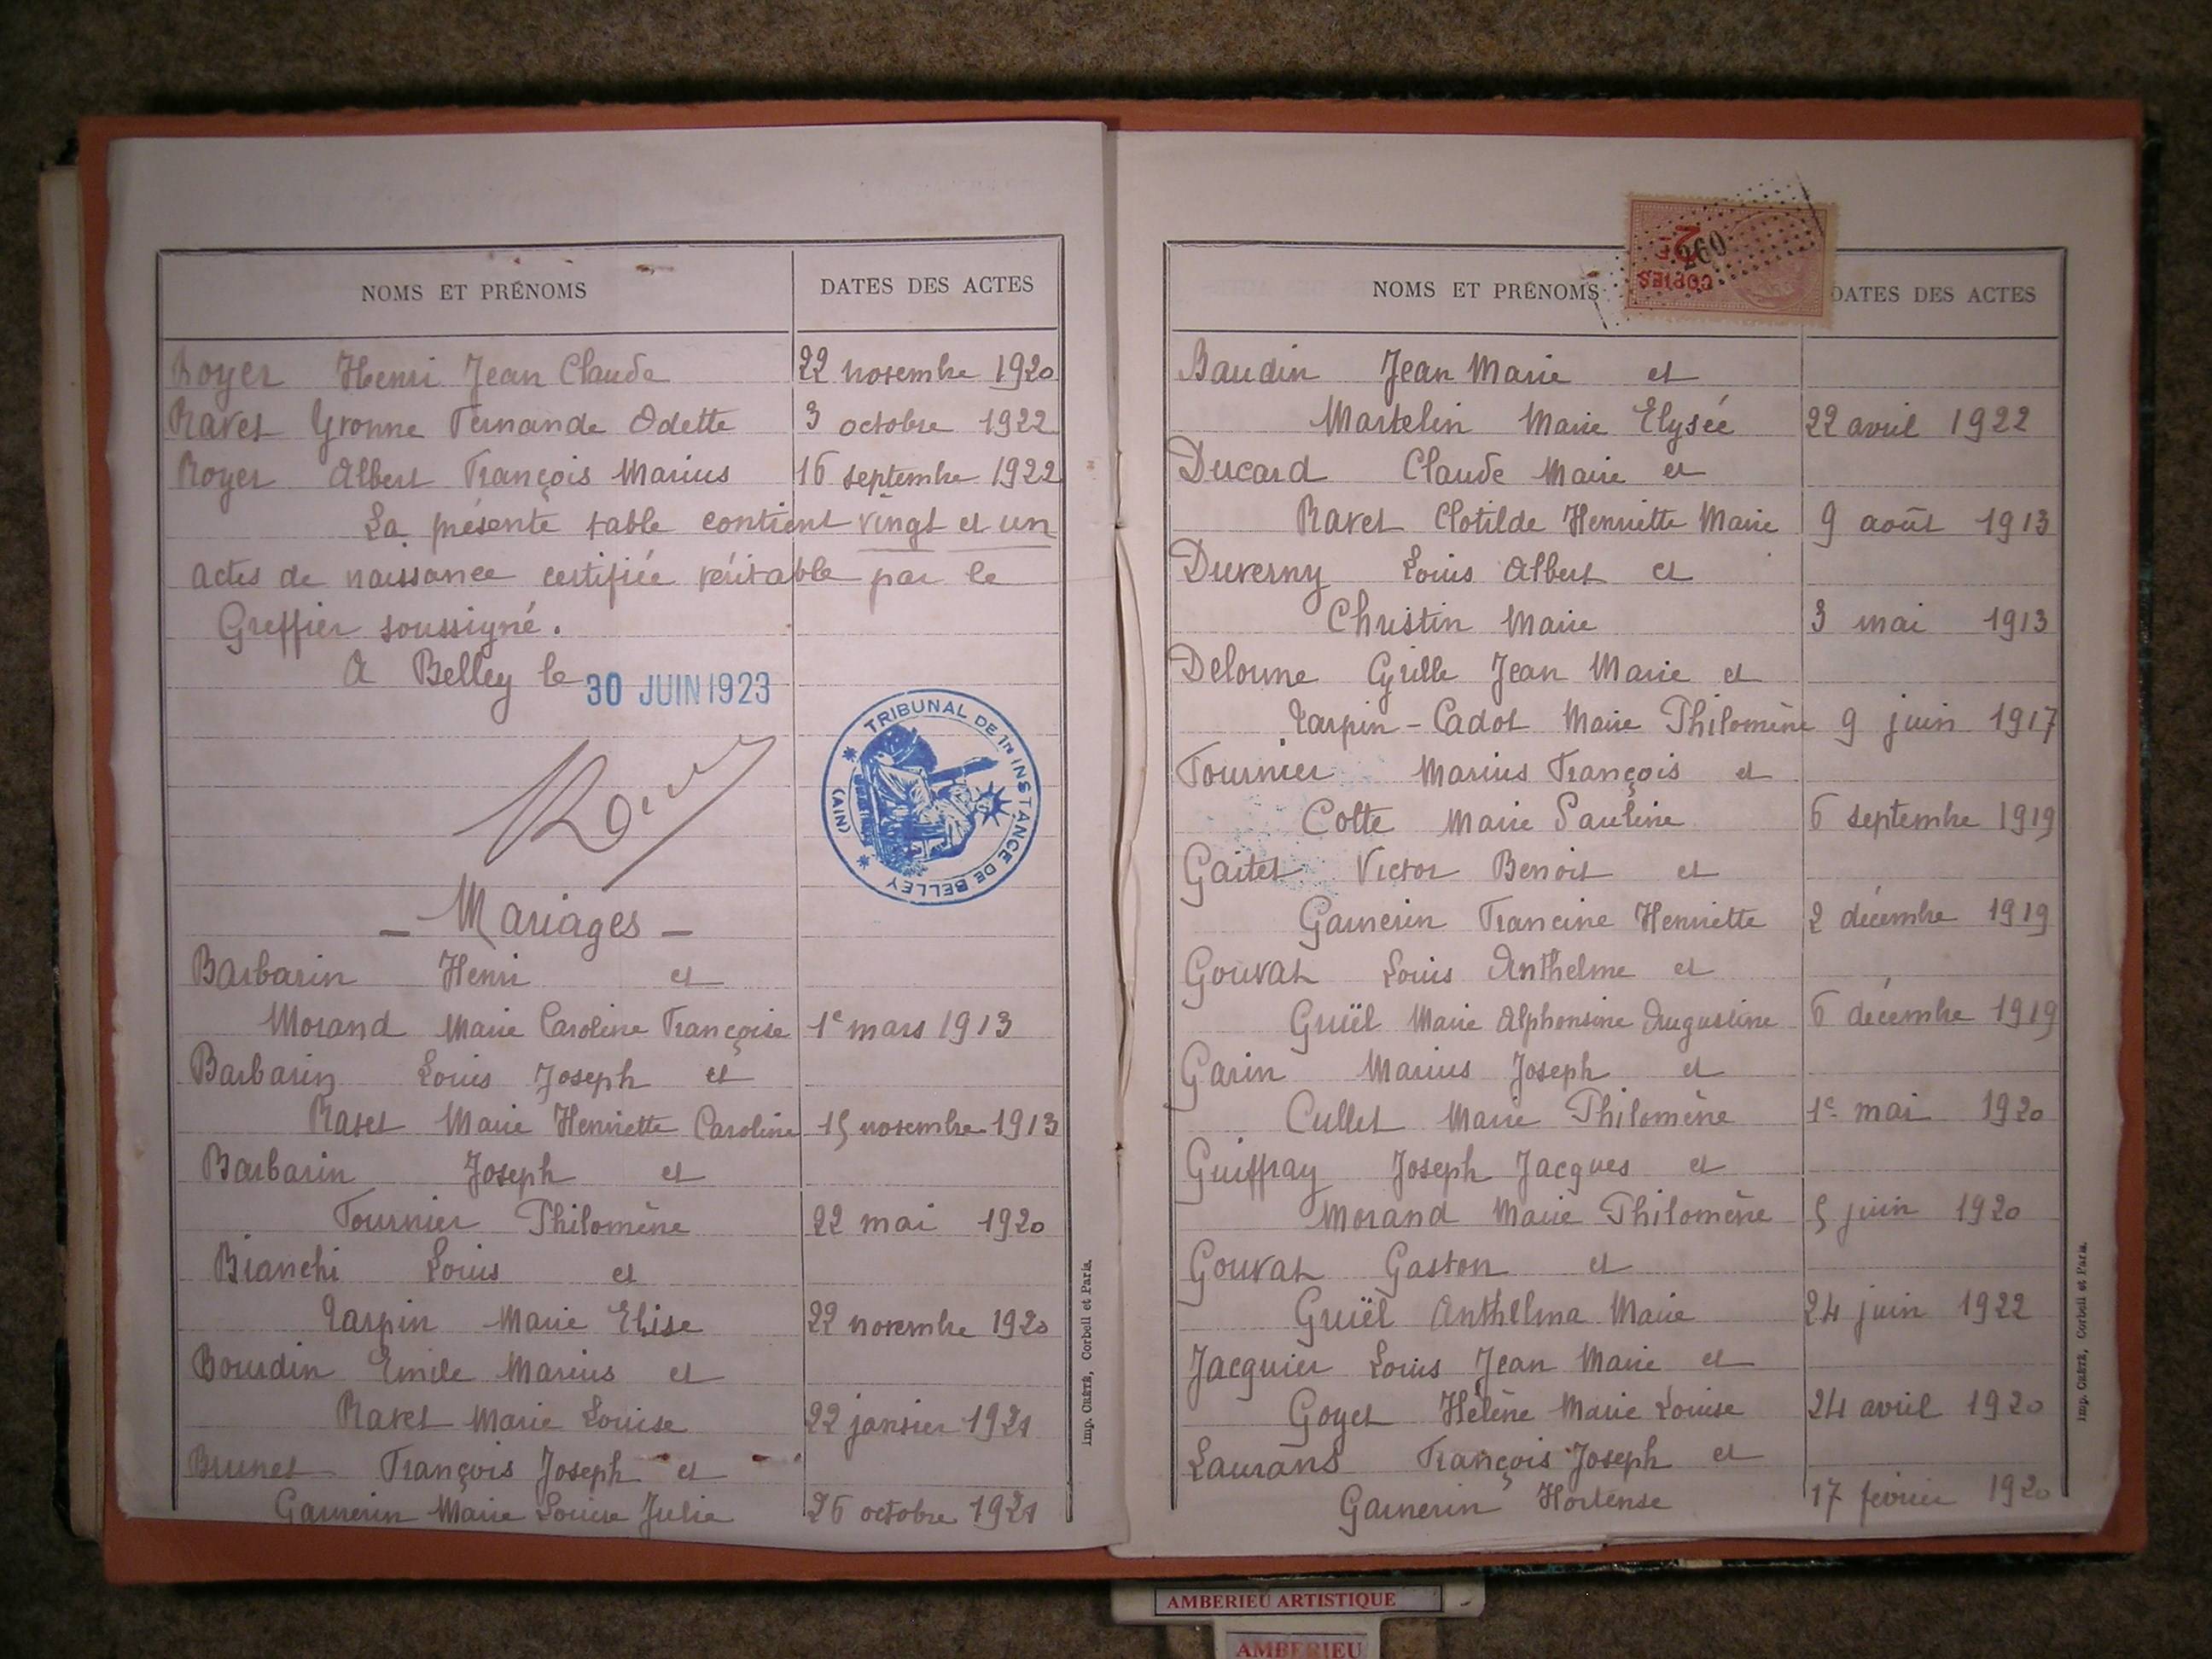 NOMS ET PRÉNOMS
DATES DES ACTES
Royer Henri Jean Claude 22 novembre 1920
Ravet Yvonne Fernande Odette 3 octobre 1922
Royer Albert François Marius 16 septembre 1922
La présente table contient vingt et un
actes de naissance certifiée véritable par le
Greffier soussigné.
A Belley le 30 JUIN 1923
TRIBUNAL DE 1re INSTANCE DE BELLEY
(AIN)
- Mariages -
Barbarin Henri et
Morand Marie Caroline Françoise 1e mars 1913
Barbarin Louis Joseph et
Ravet Marie Henriette Caroline 15 novembre 1913
Barbarin Joseph et
Tournier Philomène 22 mai 1920
Bianchi Louis et
Tarpin Marie Elise 22 novembre 1920
Bourdin Emile Marius et
Ravet Marie Louise 22 janvier 1921
Brunet François Joseph et
Garnerin Marie Louise Julie 26 octobre 1921
Imp. CRÉTÉ, Corbeil et Paris.
NOMS ET PRÉNOMS
DATES DES ACTES
COPIES
2F
260
Baudin Jean Marie et
Martelin Marie Elysée 22 avril 1922
Ducard Claude Marie et
Ravet Clotilde Henriette Marie 9 août 1913
Duverny Louis Albert et
Christin Marie 3 mai 1913
Delorme Cyrille Jean Marie et
Tarpin-Cadot Marie Philomène 9 juin 1917
Tournier Marius François et
Cotte Marie Pauline 6 septembre 1919
Gaitet Victor Benoit et
Garnerin Francine Henriette 2 décembre 1919
Gouvat Louis Anthelme et
Gruël Marie Alphonsine Augustine 6 décembre 1919
Garin Marius Joseph et
Cullet Marie Philomène 1e mai 1920
Guiffray Joseph Jacques et
Morand Marie Philomène 5 juin 1920
Gouvat Gaston et
Gruël Anthelma Marie 24 juin 1922
Jacquier Louis Jean Marie et
Goyet Hélène Marie Louise 24 avril 1920
Laurans François Joseph et
Garnerin Hortense 17 février 1920
Imp. CRÉTÉ, Corbeil et Paris.
AMBERIEU ARTISTIQUE
AMBERIEU